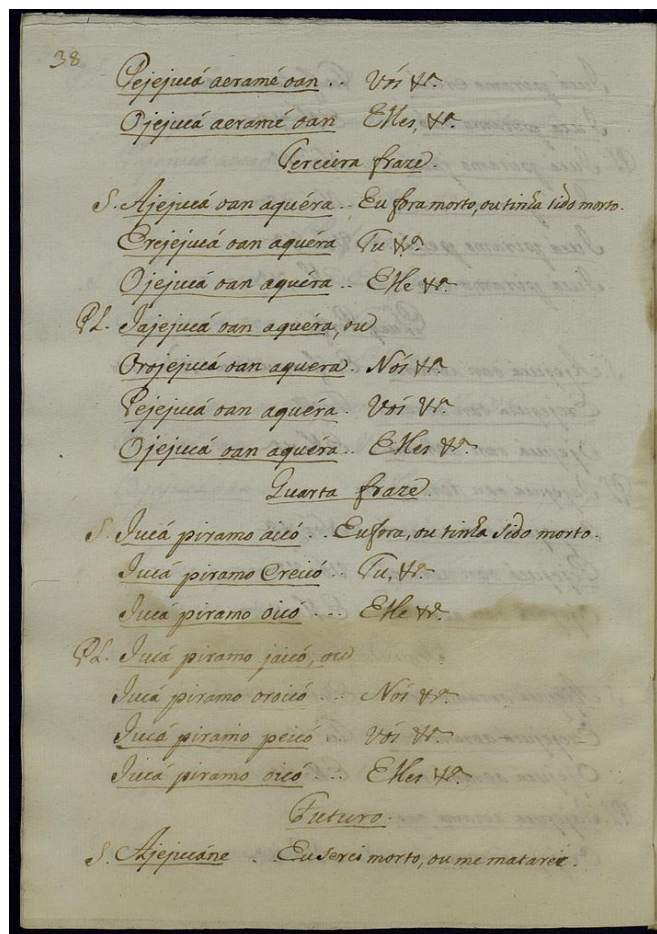 38
Pejejucá aeramé oan . Vós &ª.
Ojejucá aeramé oan Elles, &ª.
Terceira fraze.
S. Ajejucá oan aquéra .. Eu fora morto, ou tinha sido morto.
Erejejucá oan aquéra Tu &ª.
Ojejucá oan aquéra .. Elle &ª.
Pl. Jajejucá oan aquéra, ou
Orojejucá oan aquera . Nós &ª.
Pejejucá oan aquéra . Vós &ª.
Ojejucá oan aquéra .. Elles &ª.
Quarta fraze.
S. Jucá piramo aicó .. Eu fora, ou tinha sido morto.
Jucá piramo Ereicó .. Tu, &ª.
Jucá piramo oicó .... Elle &ª.
Pl. Jucá piramo jaicó, ou
Jucá piramo oroicó ... Nós &ª.
Jucá piramo peicó ... Vós &ª.
Jucá piramo oicó .... Elles &ª.
Futuro.
S. Ajejucáne .. Eu serei morto, ou me matarei.